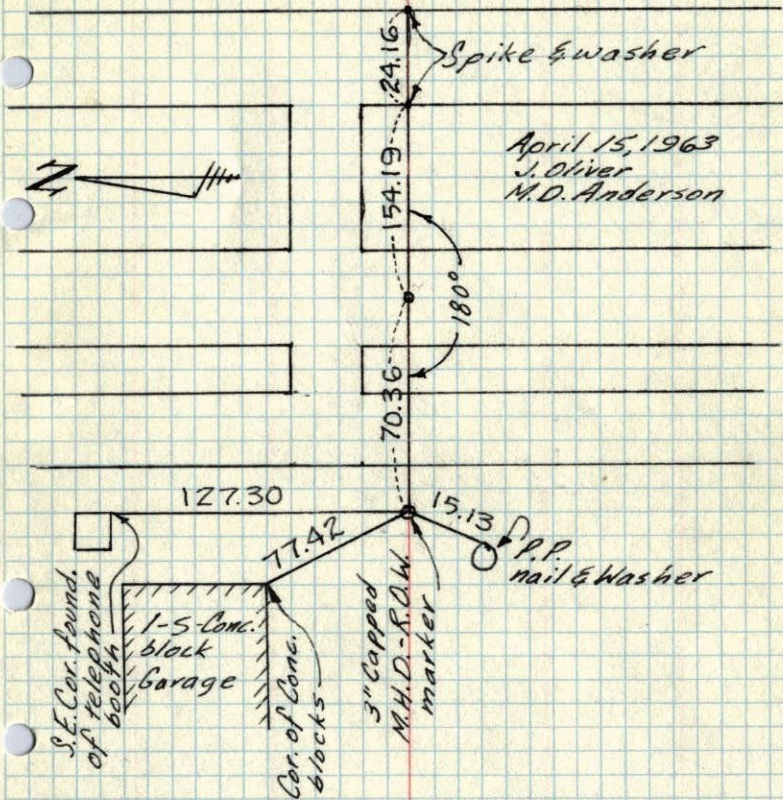 24.16
Spike & washer
April 15, 1963
J. Oliver
M.D. Anderson
N
154.19
180°
70.36
127.30
77.42
15.13
P.P.
nail & Washer
S.E. Cor. found.
of telephone
booth
1-S-Conc.
block
Garage
Cor. of Conc.
blocks
3" Capped
M.H.D.-R.O.W.
marker